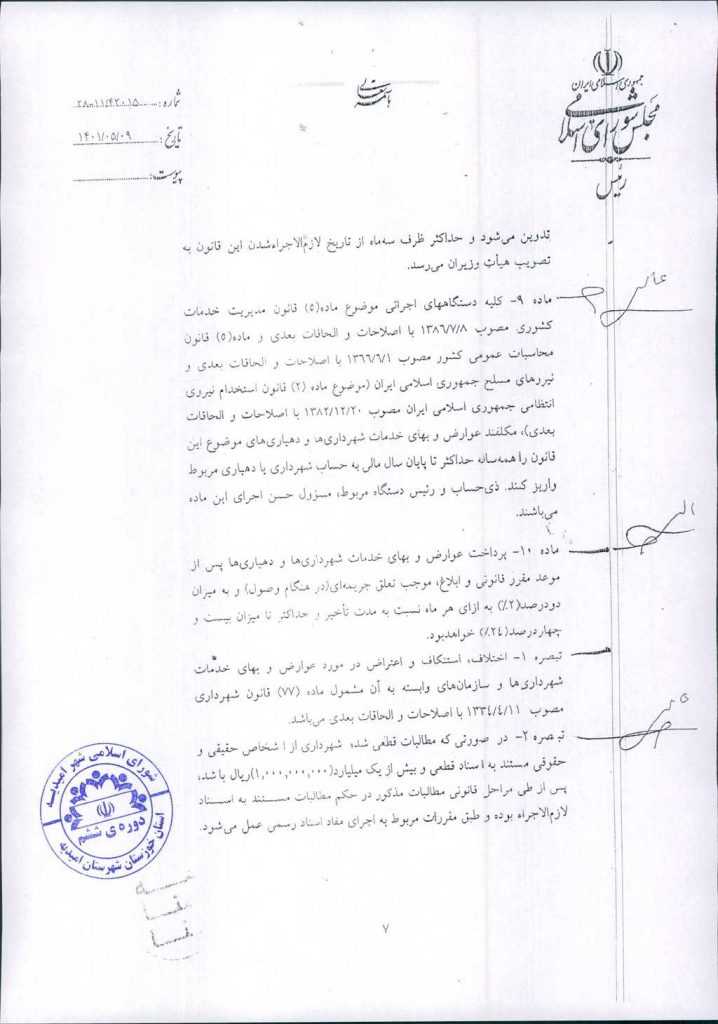 جمهوری اسلامی ایران
مجلس شورای اسلامی
رئیس
باسمه تعالی
شماره: ۲۸-۱۱/۴۲۰۱۵
تاریخ: ۱۴۰۱/۰۵/۰۹
پیوست:
تدوین می‌شود و حداکثر ظرف سه‌ماه از تاریخ لازم‌الاجراءشدن این قانون به
تصویب هیأت وزیران می‌رسد.
ماده ۹- کلیه دستگاههای اجرائی موضوع ماده(۵) قانون مدیریت خدمات
کشوری مصوب ۱۳۸۶/۷/۸ با اصلاحات و الحاقات بعدی و ماده(۵) قانون
محاسبات عمومی کشور مصوب ۱۳۶۶/۶/۱ با اصلاحات و الحاقات بعدی و
نیروهای مسلح جمهوری اسلامی ایران (موضوع ماده (۲) قانون استخدام نیروی
انتظامی جمهوری اسلامی ایران مصوب ۱۳۸۲/۱۲/۲۰ با اصلاحات و الحاقات
بعدی)، مکلفند عوارض و بهای خدمات شهرداری‌ها و دهیاری‌های موضوع این
قانون را همه‌ساله حداکثر تا پایان سال مالی به حساب شهرداری یا دهیاری مربوط
واریز کنند. ذی‌حساب و رئیس دستگاه مربوط، مسؤول حسن اجرای این ماده
می‌باشند.
ماده ۱۰- پرداخت عوارض و بهای خدمات شهرداری‌ها و دهیاری‌ها پس از
موعد مقرر قانونی و ابلاغ، موجب تعلق جریمه‌ای(در هنگام وصول) و به میزان
دودرصد(۲٪) به ازای هر ماه نسبت به مدت تأخیر و حداکثر تا میزان بیست و
چهاردرصد(۲۴٪) خواهدبود.
تبصره ۱- اختلاف، استنکاف و اعتراض در مورد عوارض و بهای خدمات
شهرداری‌ها و سازمان‌های وابسته به آن مشمول ماده (۷۷) قانون شهرداری
مصوب ۱۳۳۴/۴/۱۱ با اصلاحات و الحاقات بعدی می‌باشد.
تبصره ۲- در صورتی که مطالبات قطعی شده شهرداری از اشخاص حقیقی و
حقوقی مستند به اسناد قطعی و بیش از یک میلیارد(۱,۰۰۰,۰۰۰,۰۰۰)ریال باشد،
پس از طی مراحل قانونی مطالبات مذکور در حکم مطالبات مستند به اسناد
لازم‌الاجراء بوده و طبق مقررات مربوط به اجرای مفاد اسناد رسمی عمل می‌شود.
شورای اسلامی شهر امیدیه
دوره‌ی ششم
استان خوزستان شهرستان امیدیه
۷